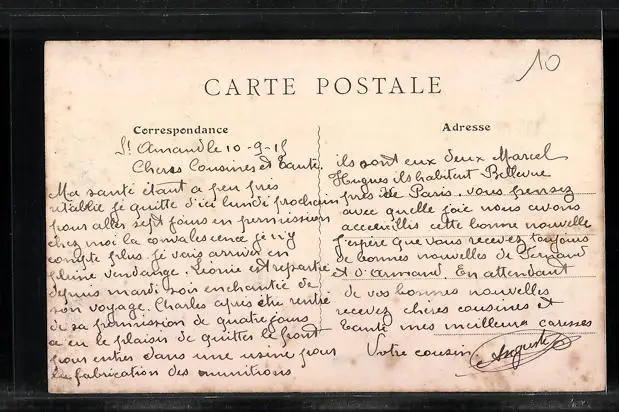 10
CARTE POSTALE
Correspondance
St Amand le 10-9-15
Cheres Cousines et tante,
Ma santé étant a peu près
rétablie je quitte d'ici lundi prochain
pour aller sept jours en permission
chez moi la convalescence je n'y
compte plus. Je vais arriver en
pleine vendange. Léonie est repartie
depuis mardi soir enchantée de
son voyage. Charles apsis étre rentré
de sa permission de quatre jours
a eu le plaisir de quitter le front
pour entrer dans une usine pour
la fabrication des munitions
Adresse
ils sont eux deux Marcel
Hugues ils habitent Bellevue
près de Paris. vous pensez
avec quelle joie nous avons
accueillis cette bonne nouvelle
J'espère que vous recevez toujours
de bonnes nouvelles de Fernand
et d'Armand. En attendant
de vos bonnes nouvelles
recevez chères cousines et
tante mes meilleurs caresses
Votre cousin Auguste